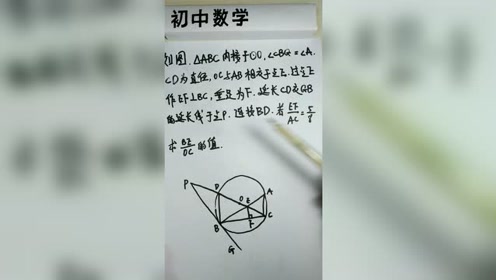 初中数学
如图. △ABC 内接于⊙O, ∠CBG=∠A.
CD为直径, OC与AB相交于点E. 过点E
作EF⊥BC, 垂足为F. 延长CD交GB
的延长线于点P. 连接BD. 若 EF/AC = 5/8
求 BE/OC 的值.
P D O E A
B F C
G